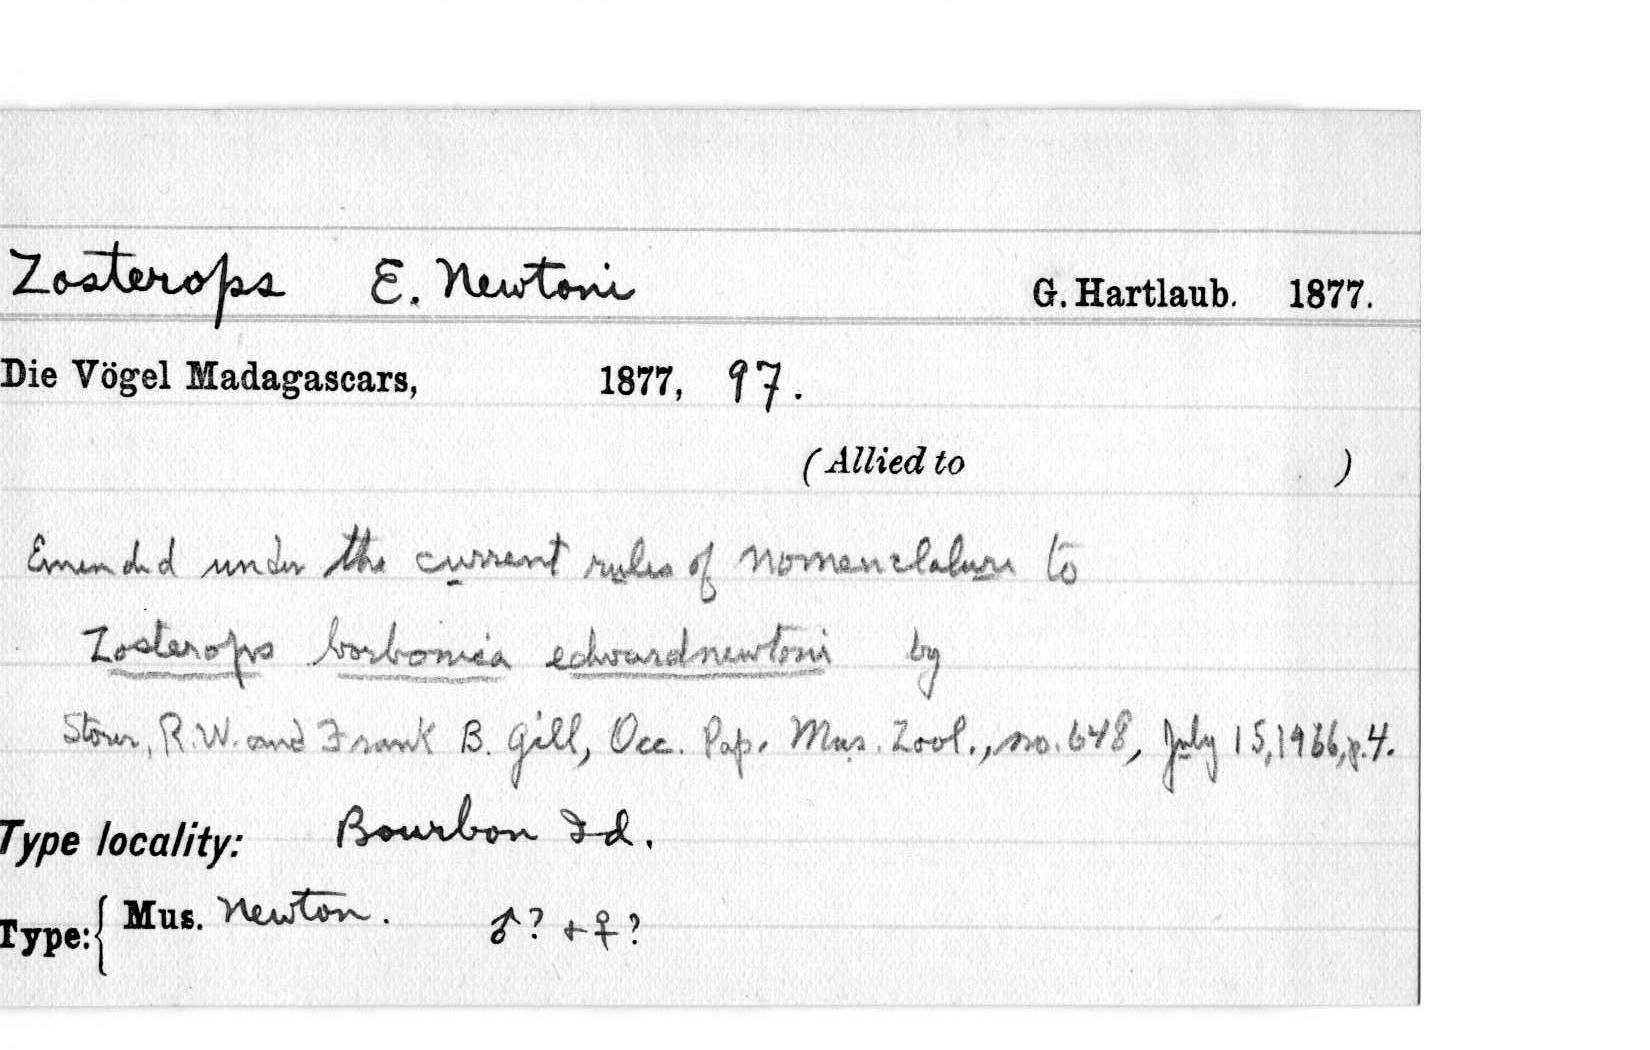 Zosterops E. Newtoni G. Hartlaub. 1877.
Die Vögel Madagascars, 1877, 97.
(Allied to )
Emended under the current rules of nomenclature to
Zosterops borbonica edwardnewtoni by
Storer, R.W. and Frank B. Gill, Occ. Pap. Mus. Zool., no. 648, July 15, 1966, p.4.
Type locality: Bourbon Id.
Type: { Mus. Newton. ♂? + ♀?